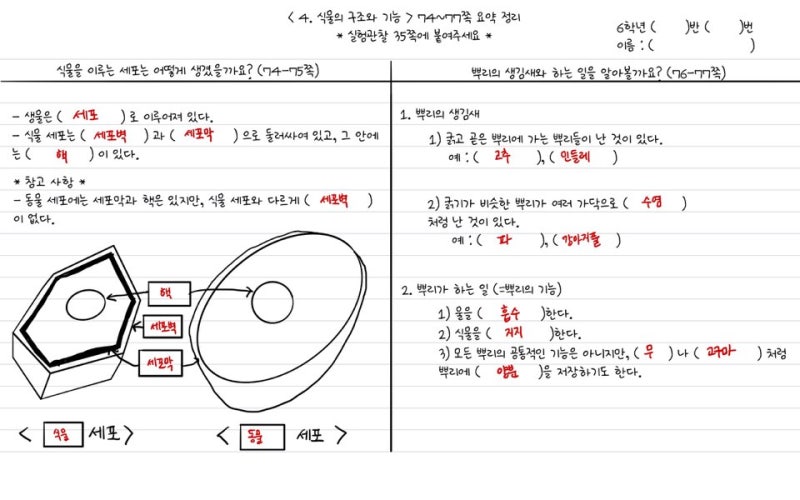 < 4. 식물의 구조와 기능 > 74~77쪽 요약 정리
* 실험관찰 35쪽에 붙여주세요 *
6학년 ( )반 ( )번
이름 : ( )
식물을 이루는 세포는 어떻게 생겼을까요? (74-75쪽)
- 생물은 ( 세포 ) 로 이루어져 있다.
- 식물 세포는 ( 세포벽 ) 과 ( 세포막 ) 으로 둘러싸여 있고, 그 안에
는 ( 핵 ) 이 있다.
* 참고 사항 *
- 동물 세포에는 세포막과 핵은 있지만, 식물 세포와 다르게 ( 세포벽 )
이 없다.
핵
세포벽
세포막
< 식물 세포 >
< 동물 세포 >
뿌리의 생김새와 하는 일을 알아볼까요? (76-77쪽)
1. 뿌리의 생김새
1) 굵고 곧은 뿌리에 가는 뿌리들이 난 것이 있다.
예 : ( 고추 ), ( 민들레 )
2) 굵기가 비슷한 뿌리가 여러 가닥으로 ( 수염 )
처럼 난 것이 있다.
예 : ( 파 ), ( 강아지풀 )
2. 뿌리가 하는 일 (=뿌리의 기능)
1) 물을 ( 흡수 )한다.
2) 식물을 ( 지지 )한다.
3) 모든 뿌리의 공통적인 기능은 아니지만, ( 무 ) 나 ( 고구마 ) 처럼
뿌리에 ( 양분 )을 저장하기도 한다.